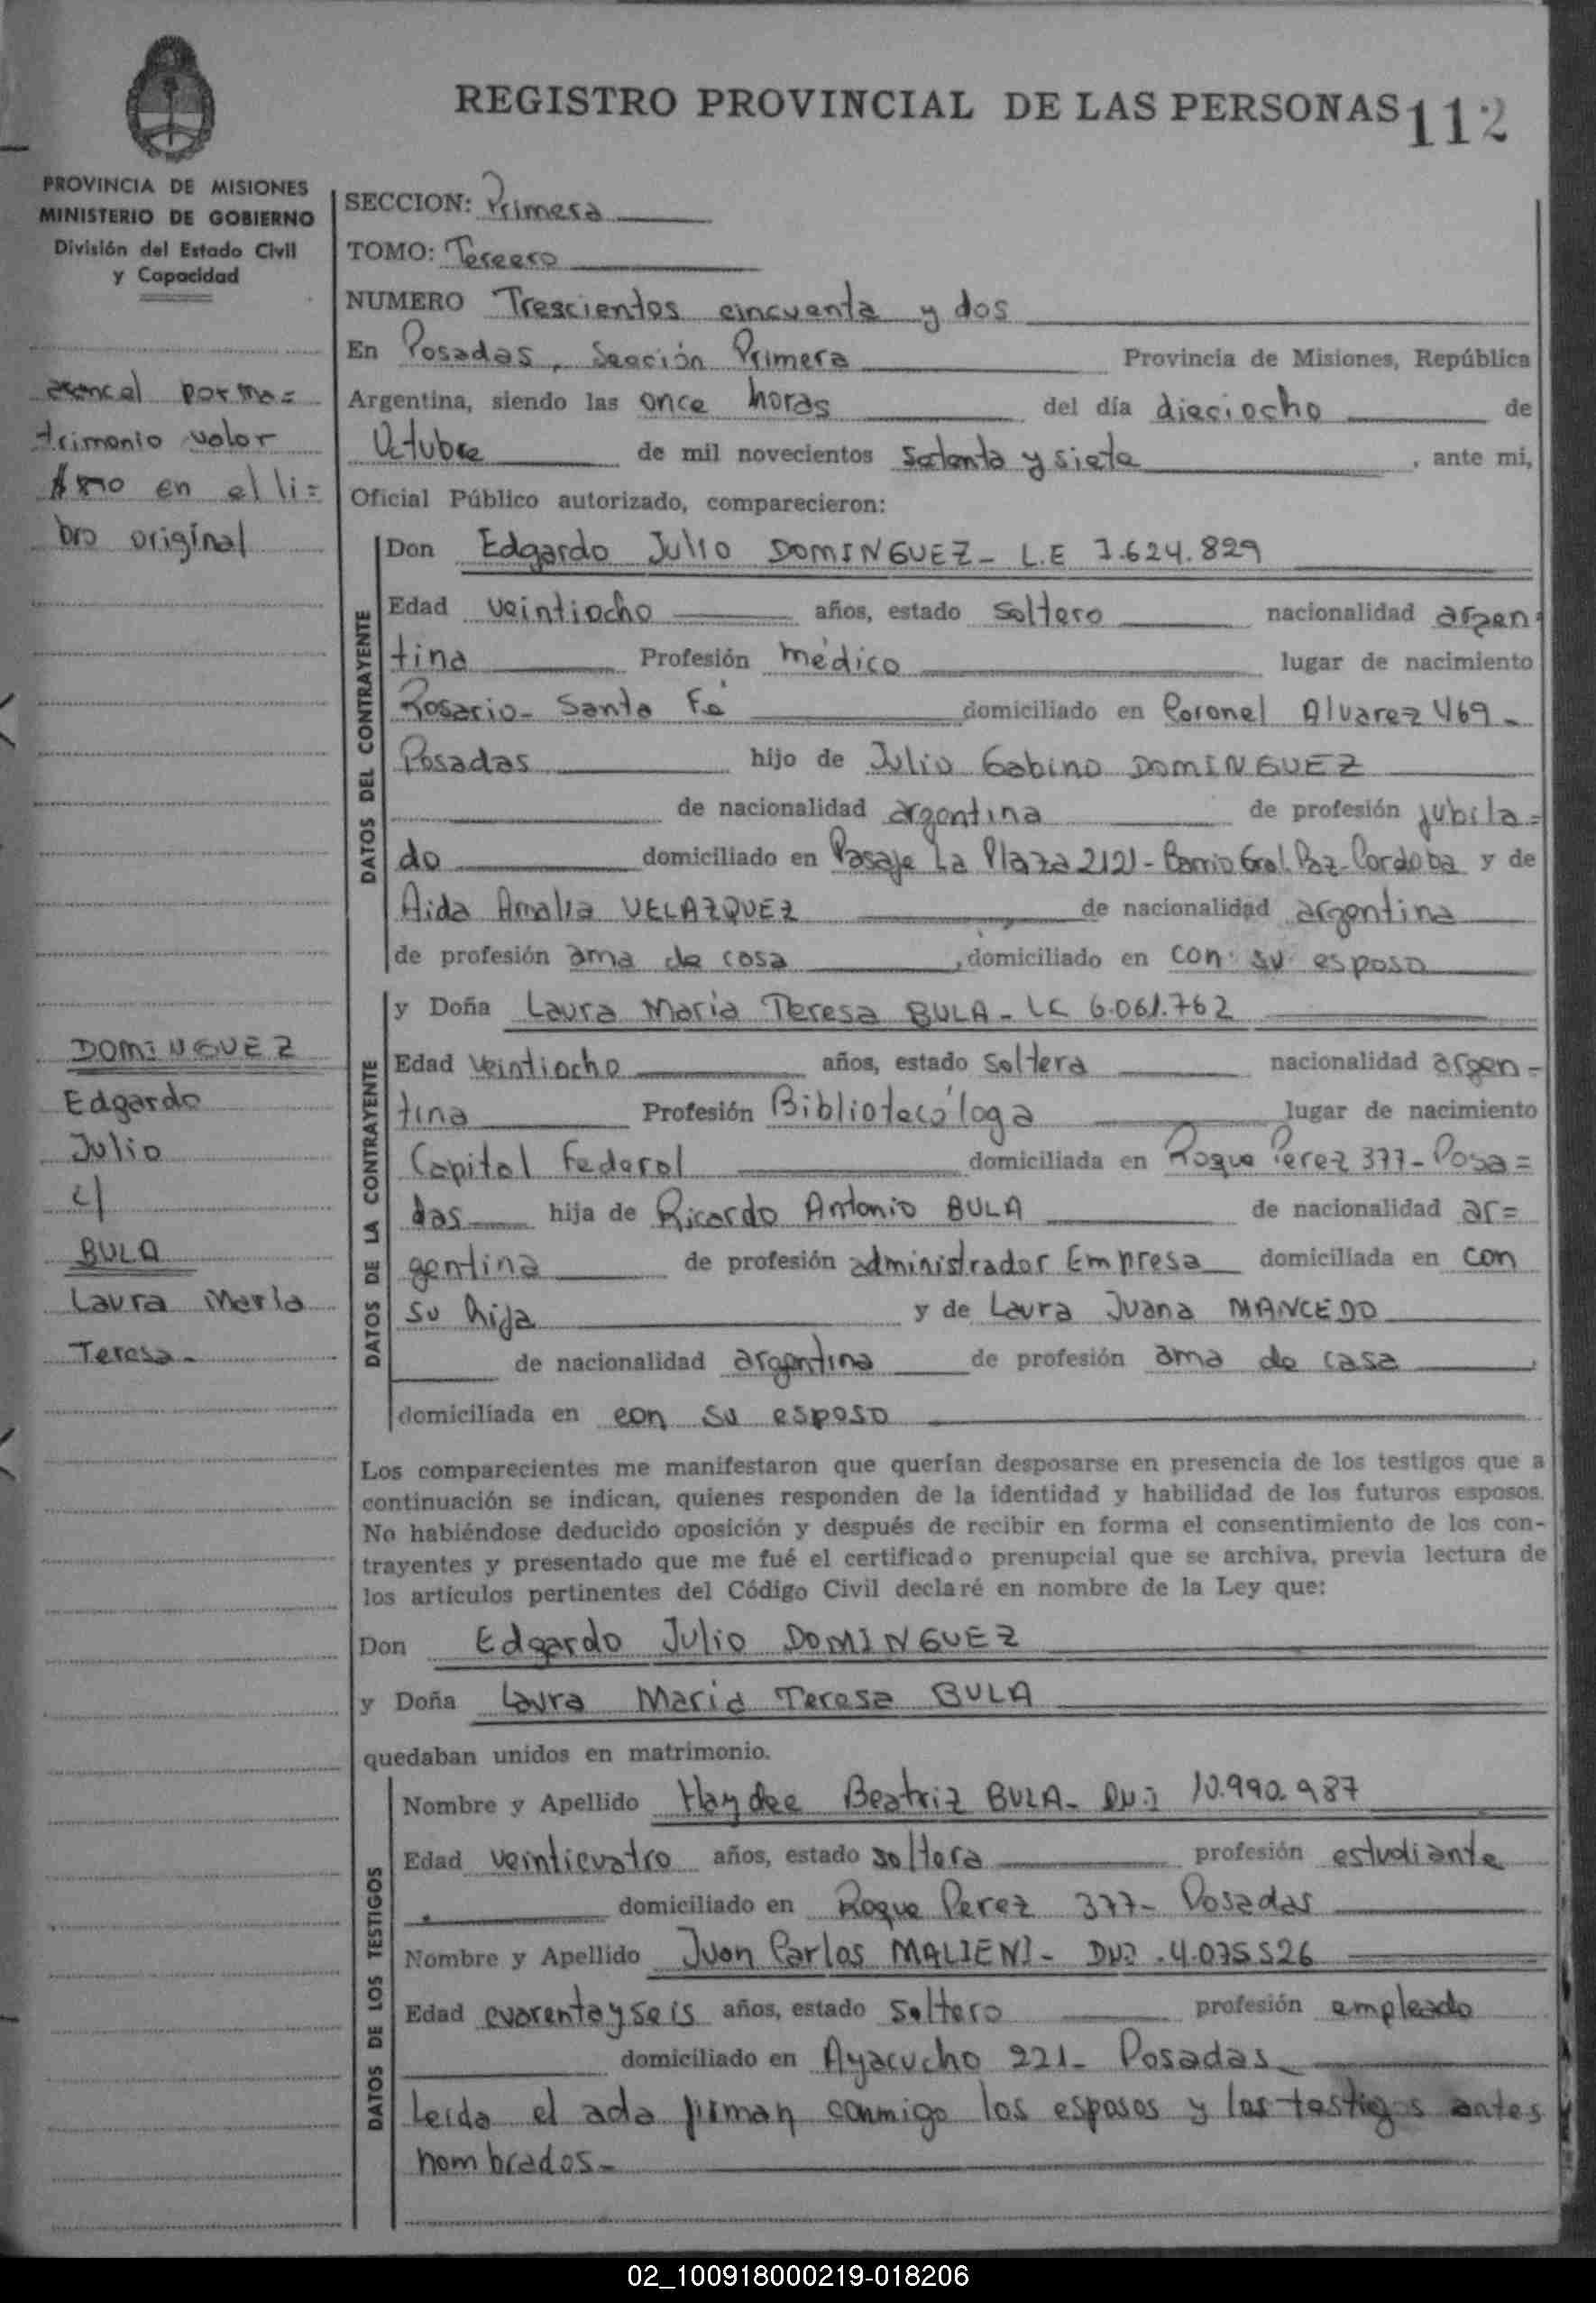 REGISTRO PROVINCIAL DE LAS PERSONAS 112
PROVINCIA DE MISIONES
MINISTERIO DE GOBIERNO
División del Estado Civil
y Capacidad
arancel por ma=
trimonio valor
en el li=
bro original
DOMINGUEZ
Edgardo
Julio
c/
BULA
Laura Maria
Teresa-
SECCION: Primera
TOMO: Tercero
NUMERO Trescientos cincuenta y dos
En Posadas, Sección Primera Provincia de Misiones, República
Argentina, siendo las once horas del día dieciocho de
Octubre de mil novecientos setenta y siete, ante mi,
Oficial Público autorizado, comparecieron:
DATOS DEL CONTRAYENTE
Don Edgardo Julio DOMINGUEZ- L.E 7.624.829
Edad veintiocho años, estado soltero nacionalidad argen-
tina Profesión médico lugar de nacimiento
Rosario- Santa Fé domiciliado en Coronel Alvarez 469-
Posadas hijo de Julio Gabino DOMINGUEZ
de nacionalidad argentina de profesión jubila=
do domiciliado en Pasaje La Plaza 2121- Barrio Gral. Paz- Cordoba y de
Aida Amalia VELAZQUEZ de nacionalidad argentina
de profesión ama de casa, domiciliado en con su esposo
DATOS DE LA CONTRAYENTE
y Doña Laura Maria Teresa BULA- LC 6.061.762
Edad veintiocho años, estado soltera nacionalidad argen-
tina Profesión Bibliotecóloga lugar de nacimiento
Capital Federal domiciliada en Roque Perez 377- Posa=
das hija de Ricardo Antonio BULA de nacionalidad ar=
gentina de profesión administrador Empresa domiciliada en con
su hija y de Laura Juana MANCEDO
de nacionalidad argentina de profesión ama de casa,
domiciliada en con su esposo
Los comparecientes me manifestaron que querían desposarse en presencia de los testigos que a
continuación se indican, quienes responden de la identidad y habilidad de los futuros esposos.
No habiéndose deducido oposición y después de recibir en forma el consentimiento de los con-
trayentes y presentado que me fué el certificado prenupcial que se archiva, previa lectura de
los artículos pertinentes del Código Civil declaré en nombre de la Ley que:
Don Edgardo Julio DOMINGUEZ
y Doña Laura Maria Teresa BULA
quedaban unidos en matrimonio.
DATOS DE LOS TESTIGOS
Nombre y Apellido Haydee Beatriz BULA- 10.990.987
Edad veinticuatro años, estado soltera profesión estudiante
domiciliado en Roque Perez 377- Posadas
Nombre y Apellido Juan Carlos MALIENI- 4.075526
Edad cuarenta y seis años, estado soltero profesión empleado
domiciliado en Ayacucho 221- Posadas
Leida el acta firman conmigo los esposos y los testigos antes
nombrados-
02_100918000219-018206